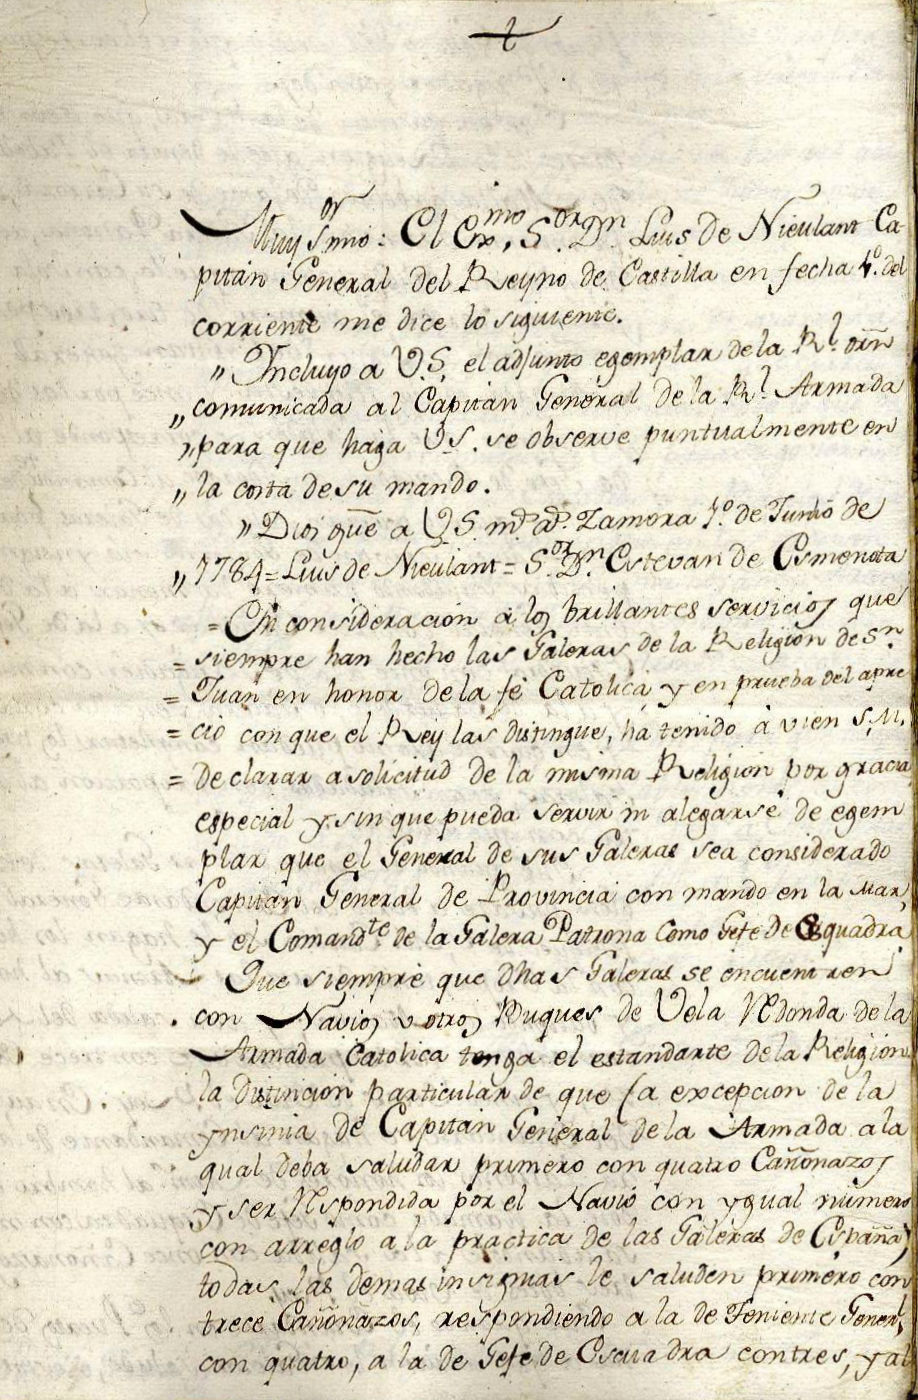 Muy Sor mio: El Exmo. Sor. Dn. Luis de Nieulant Ca-
pitán General del Reyno de Castilla en fecha 1o. del
corriente me dice lo siguiente.
" Incluyo a V.S. el adjunto egemplar de la Rl. orñ
" comunicada al Capitan General de la Rl. Armada
" para que haga V.S. se observe puntualmente en
" la costa de su mando.
" Dios gue a V.S. ms. as. Zamora 1o. de Junio de
" 1784 = Luis de Nieulant = Sor. Dn. Estevan de Esmenota
= En consideración á los brillantes servicios que
= siempre han hecho las Galeras de la Religion de Sn.
= Juan en honor de la fé Catolica, y en prueba del apre
= cio con que el Rey las distingue, há tenido á vien S.M.
= declarar a solicitud de la misma Religion por gracia
especial y sin que pueda servir ni alegarse de egem
plar que el General de sus Galeras sea considerado
Capitan General de Provincia con mando en la Mar,
y el Comandte. de la Galera Patrona como Gefe de Esquadra.
Que siempre que dhas Galeras se encuentren
con Navios, v otros Buques de Vela Redonda de la
Armada Catolica tenga el estandarte de la Religion
la distincion particular de que (a excepcion de la
ynsinia de Capitan General de la Armada a la
qual deba saludar primero con quatro Cañonazos
y ser Respondida por el Navio con ygual numero
con arreglo a la practica de las Galeras de España)
todas las demas insignias le saluden primero con
trece Cañonazos, respondiendo a la de Teniente General
con quatro, a la de Gefe de Escuadra con tres, y al